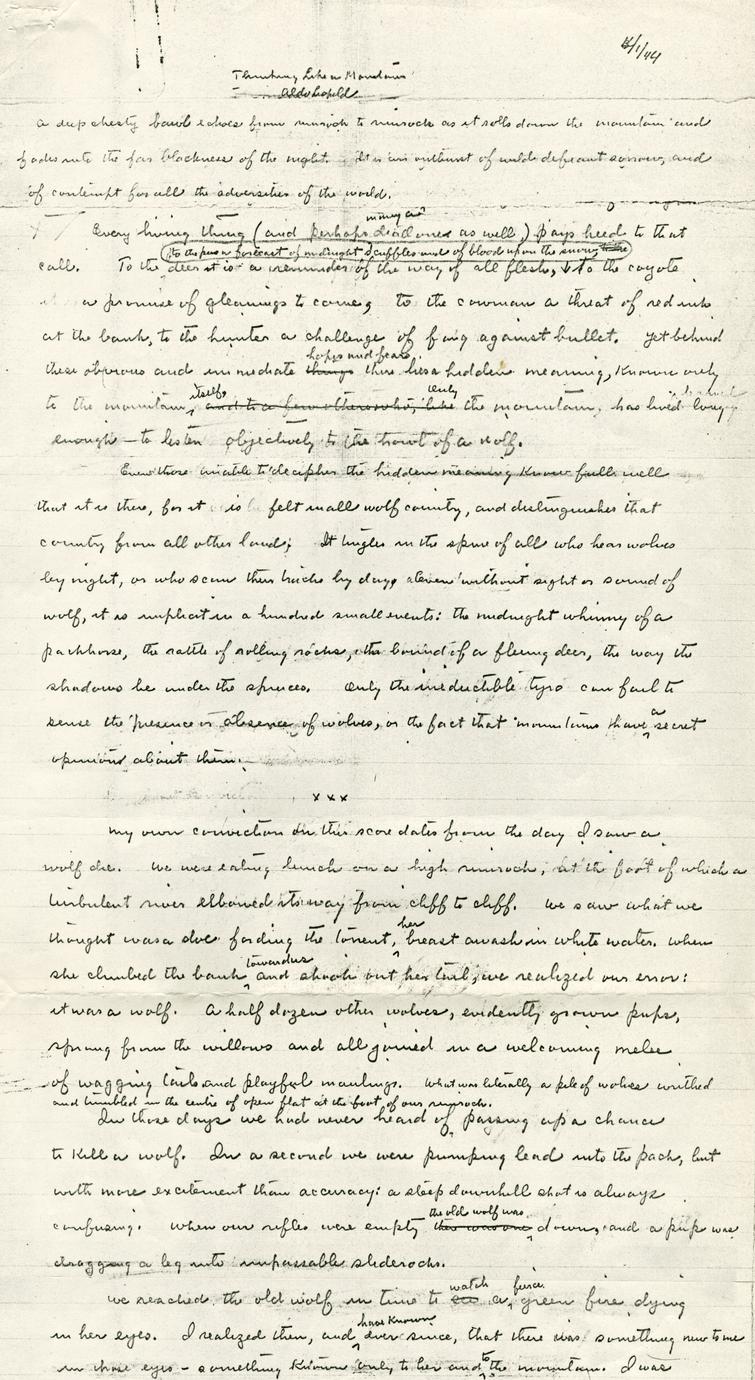 4/1/44
Thinking Like a Mountain
Aldo Leopold
A deep chesty bawl echoes from rimrock to rimrock as it rolls down the mountain and
fades into the far blackness of the night. It is an outburst of wild defiant sorrow, and
of contempt for all the adversities of the world.
many a
Every living thing (and perhaps dead ones as well) pays heed to that
to the pine a forecast of midnight scuffles and of blood upon the snow,
call. To the deer it is a reminder of the way of all flesh, to the coyote
a promise of gleanings to come, to the cowman a threat of red ink
at the bank, to the hunter a challenge of fang against bullet. Yet behind
hopes and fears
these obvious and immediate things there lies a hidden meaning, known only
itself. Only
to the mountain, and to a few others who, like the mountain, has lived long
enough – to listen objectively to the howl of a wolf.
Even those unable to decipher the hidden meaning know full well
that it is there, for it is felt in all wolf country, and distinguishes that
country from all other land; It tingles in the spine of all who hear wolves
by night, or who scan their tracks by day, even without sight or sound of
wolf, it is implicit in a hundred small events: the midnight whinny of a
packhorse, the rattle of rolling rocks, the bound of a fleeing deer, the way the
shadows lie under the spruces. Only the ineductible tyro can fail to
a
sense the presence or absence of wolves, or the fact that mountains have secret
opinions about them.
x x x
My own conviction on this score dates from the day I saw a
wolf die. We were eating lunch on a high rimrock, at the foot of which a
turbulent river elbowed its way from cliff to cliff. We saw what we
her
thought was a doe fording the torrent, breast awash in white water. When
toward us
she climbed the bank and shook out her tail, we realized our error:
it was a wolf. A half dozen other wolves, evidently grown pups,
sprang from the willows and all joined in a welcoming melee
of wagging tails and playful maulings. What was literally a pile of wolves writhed
and tumbled in the centre of open flat at the foot of our rimrock.
In those days we had never heard of passing up a chance
to kill a wolf. In a second we were pumping lead into the pack, but
with more excitement than accuracy: a steep downhill shot is always
the old wolf was
confusing. When our rifles were empty there was one down, and a pup was
dragging a leg into impassable sliderocks.
watch fierce
We reached the old wolf in time to see a green fire dying
have known
in her eyes. I realized then, and ever since, that there was something new to me
to
in those eyes – something known only to her and the mountain. I was